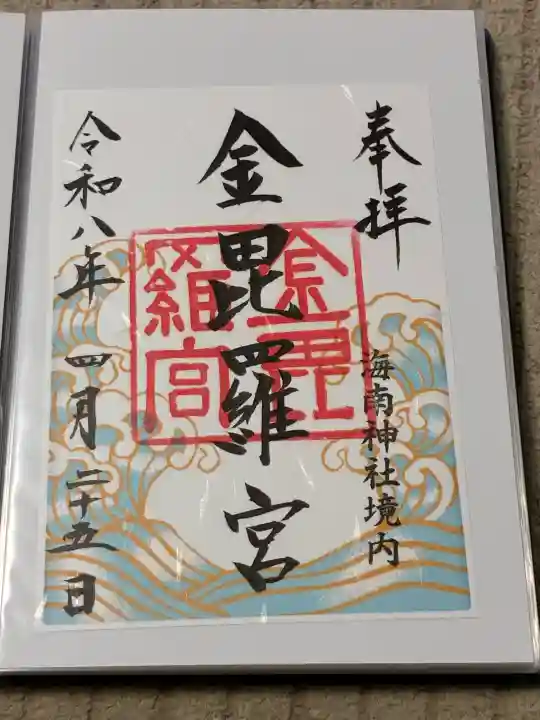 奉拝
海南神社境内
金毘羅宮
金毘
羅宮
令和八年 四月 二十五日